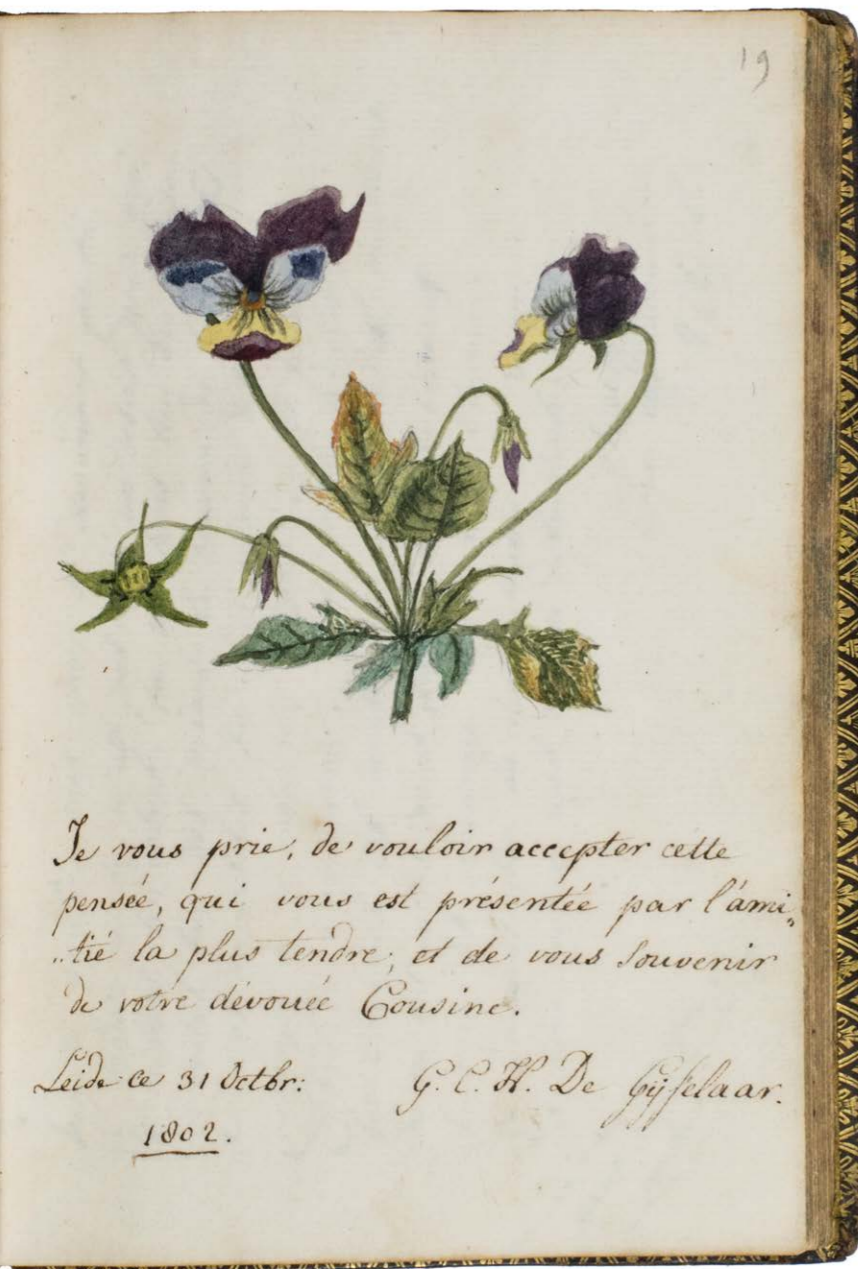 19
Je vous prie, de vouloir accepter cette
pensée, qui vous est présentée par l'ámi„
„tié la plus tendre, et de vous souvenir
de votre dévouée Cousine.
Leide ce 31 Octbr: G. C. H. De Gijselaar.
1802.